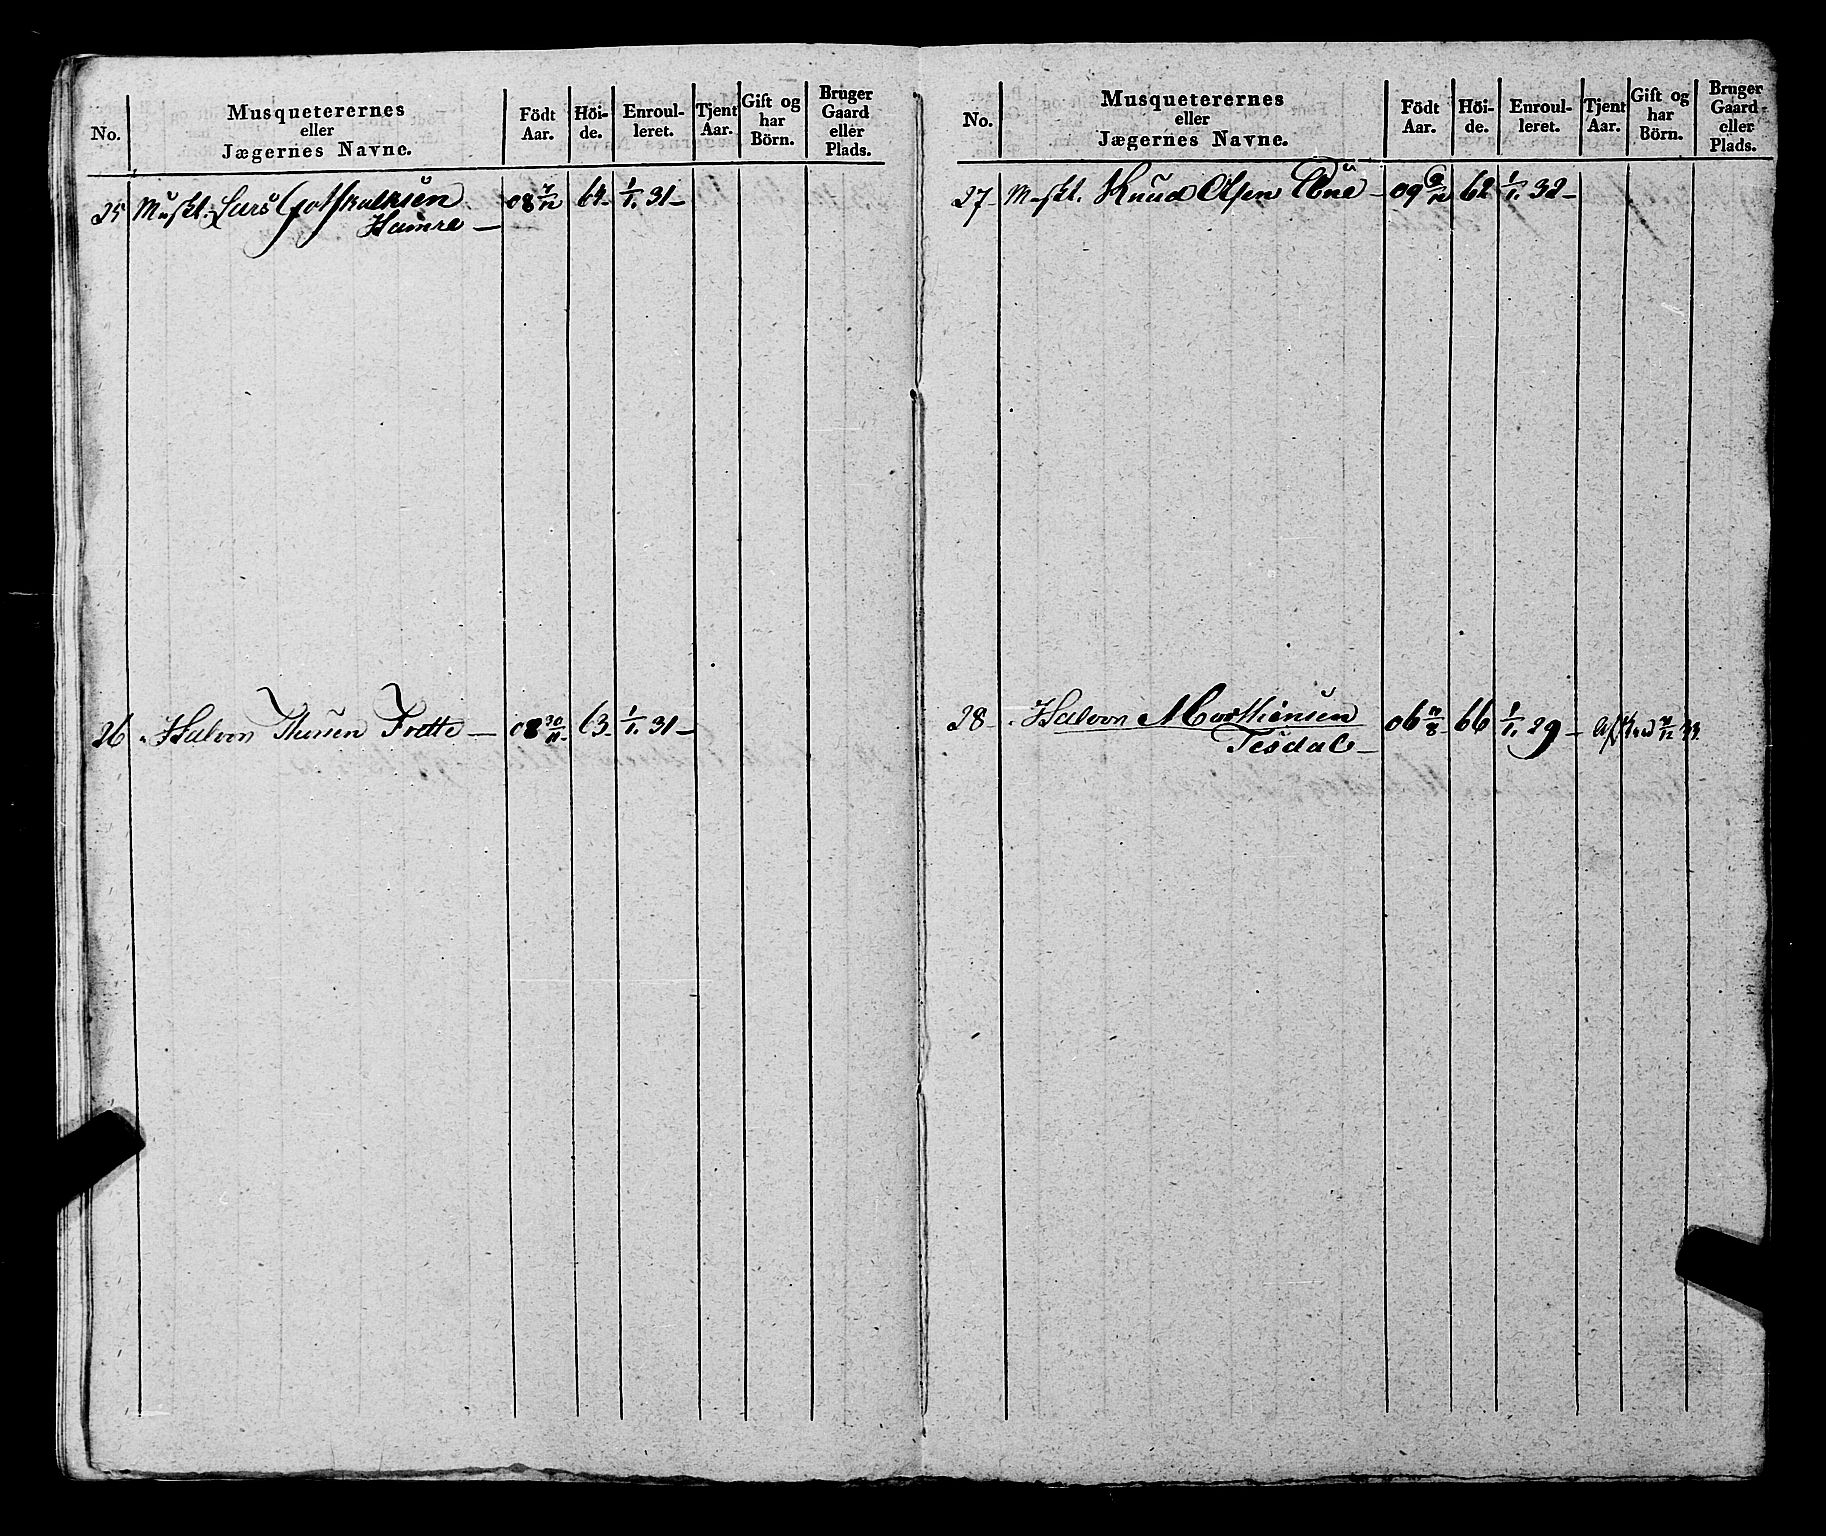 No.
Musqueterernes
eller
Jægernes Navne.
Födt
Aar.
Höi-
de.
Enroul-
leret.
Tjent
Aar.
Gift og
har
Börn.
Bruger
Gaard
eller
Plads.
25 Muskt. Lars Gotskalksen 08 7/12 64 1/1 31
Hamre
26 Halvor 08 30/11 63 1/1 31
No.
Musqueterernes
eller
Jægernes Navne.
Födt
Aar.
Höi-
de.
Enroul-
leret.
Tjent
Aar.
Gift og
har
Börn.
Bruger
Gaard
eller
Plads.
27 Muskt. Knud Olsen 09 62 1/1 32
28 Halvor Morthensen 06 66 1/1 29
Tesdal